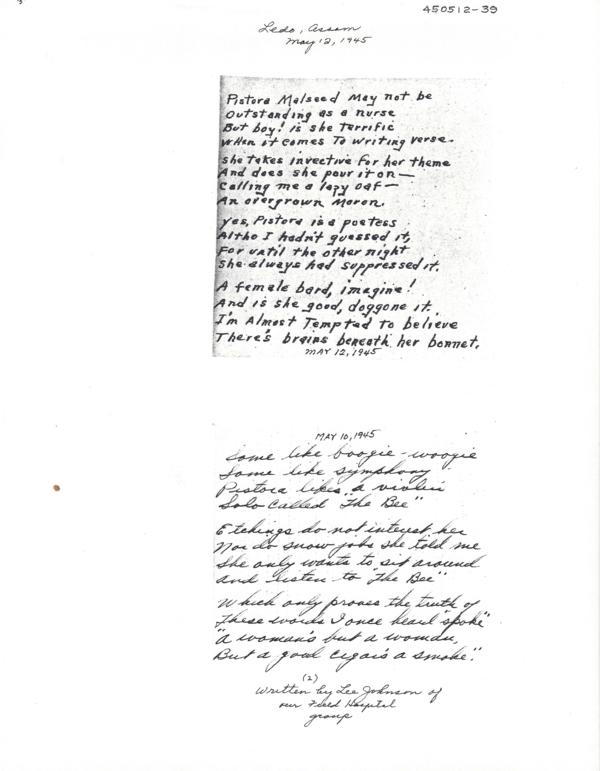 450512-39
Ledo, Assam
May 12, 1945
Pistora Malseed May not be
Outstanding as a nurse
But boy! is she terrific
When it comes To writing verse.
She takes invective for her theme
And does she pour it on—
Calling me a lazy oaf—
An overgrown Moron.
Yes, Pistora is a poetess
Altho I hadn't guessed it,
For until the other night
She always had suppressed it.
A female bard, imagine!
And is she good, doggone it.
I'm Almost Tempted to believe
There's brains beneath her bonnet.
MAY 12, 1945
MAY 10, 1945
Some like boogie-woogie
Some like symphony
Pistora likes a violin
Solo called "The Bee"
Etchings do not interest her
Nor do snow jobs she told me
She only wants to sit around
and listen to "The Bee"
Which only proves the truth of
These words I once heard "spoke"
"A woman's but a woman,
But a good cigar's a smoke".
(2)
Written by Lee Johnson of
our Field Hospital
group